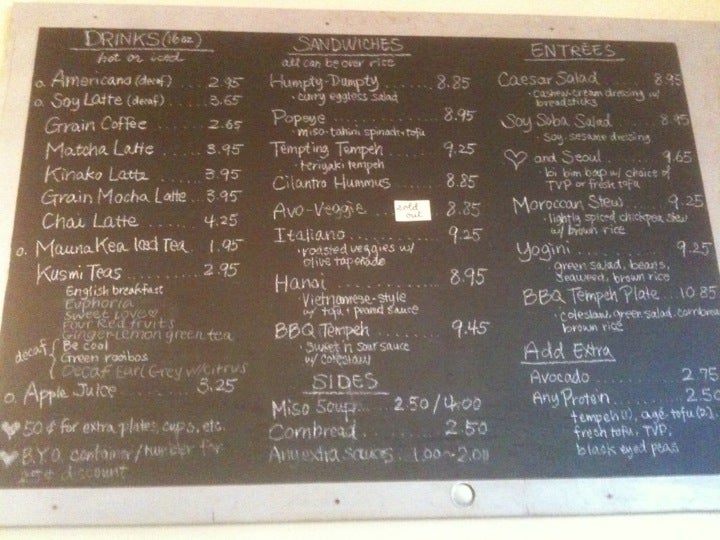 DRINKS (16 oz)
hot or iced
o. Americano (decaf) .... 2.95
o. Soy Latte (decaf) .... 3.65
Grain Coffee .... 2.65
Matcha Latte .... 3.95
Kinako Latte .... 3.95
Grain Mocha Latte .. 3.95
Chai Latte .... 4.25
o. Mauna Kea Iced Tea . 1.95
Kusmi Teas .... 2.95
English breakfast
Euphoria
Sweet Love
Four Red fruits
Ginger-Lemon green tea
decaf { Be cool
Green rooibos
Decaf Earl Grey w/citrus
o. Apple Juice .... 3.25
♥ 50¢ for extra plates, cups, etc.
♥ B.Y.O. container/ for
25¢ discount
SANDWICHES
all can be over rice
Humpty-Dumpty .... 8.85
· curry eggless salad
Popeye .... 8.95
· miso-tahini spinach + tofu
Tempting Tempeh .... 9.25
· teriyaki tempeh
Cilantro Hummus .... 8.85
Avo-Veggie ... sold out 8.85
Italiano .... 9.25
· roasted veggies w/
olive tapenade
Hanoi .... 8.95
· Vietnamese-style
w/ tofu + peanut sauce
BBQ Tempeh .... 9.45
· Sweet n Sour sauce
w/ coleslaw
SIDES
Miso Soup .... 2.50/4.00
Cornbread .... 2.50
Any extra sauces .. 1.00~2.00
ENTRÉES
Caesar Salad .... 8.95
· cashew-cream dressing w/
breadsticks
Soy Soba Salad .... 8.95
Soy, sesame dressing
♡ and Seoul .... 9.65
bi bim bap w/ choice of
TVP or fresh tofu
Moroccan Stew .... 9.25
· lightly spiced chickpea stew
w/ brown rice
Yogini .... 9.25
green salad, beans,
seaweed, brown rice
BBQ Tempeh Plate .. 10.85
· coleslaw, green salad, cornbread
brown rice
Add Extra
Avocado .... 2.75
Any Protein .... 2.50
tempeh (1), age tofu (2),
fresh tofu, TVP,
black eyed peas